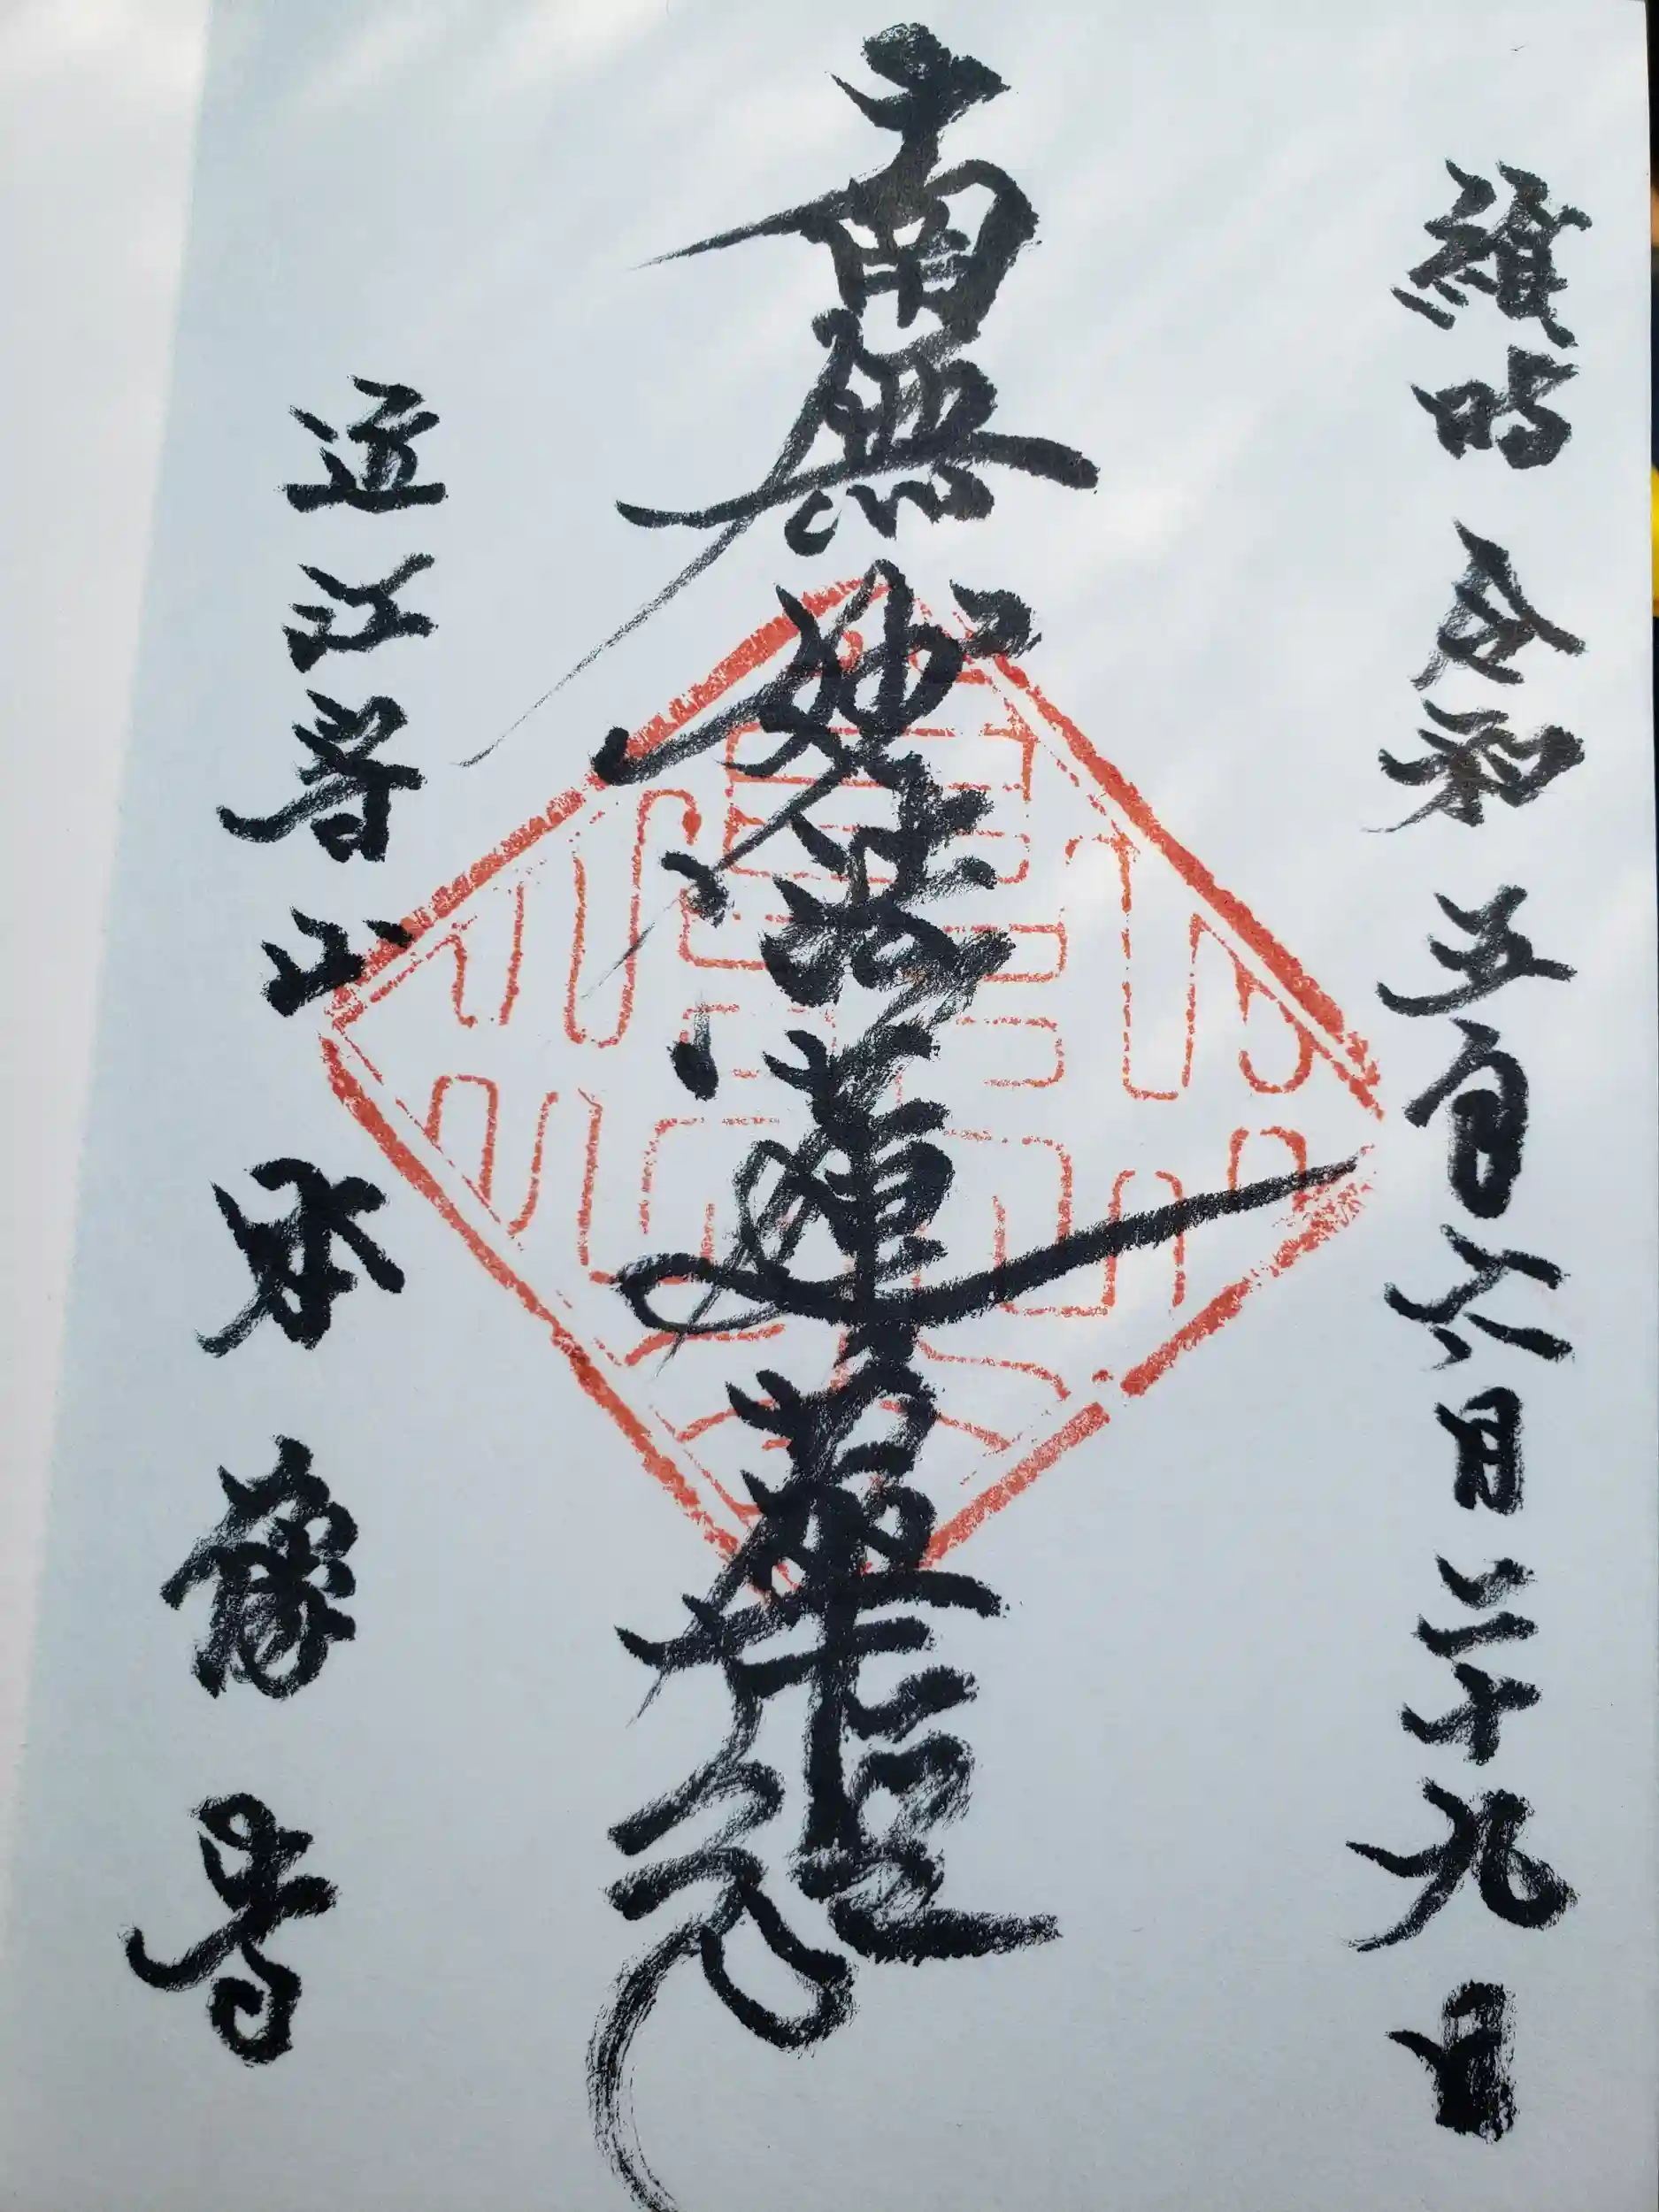 維時 令和五年六月二十九日
南無妙法蓮華経
近江 山 寺